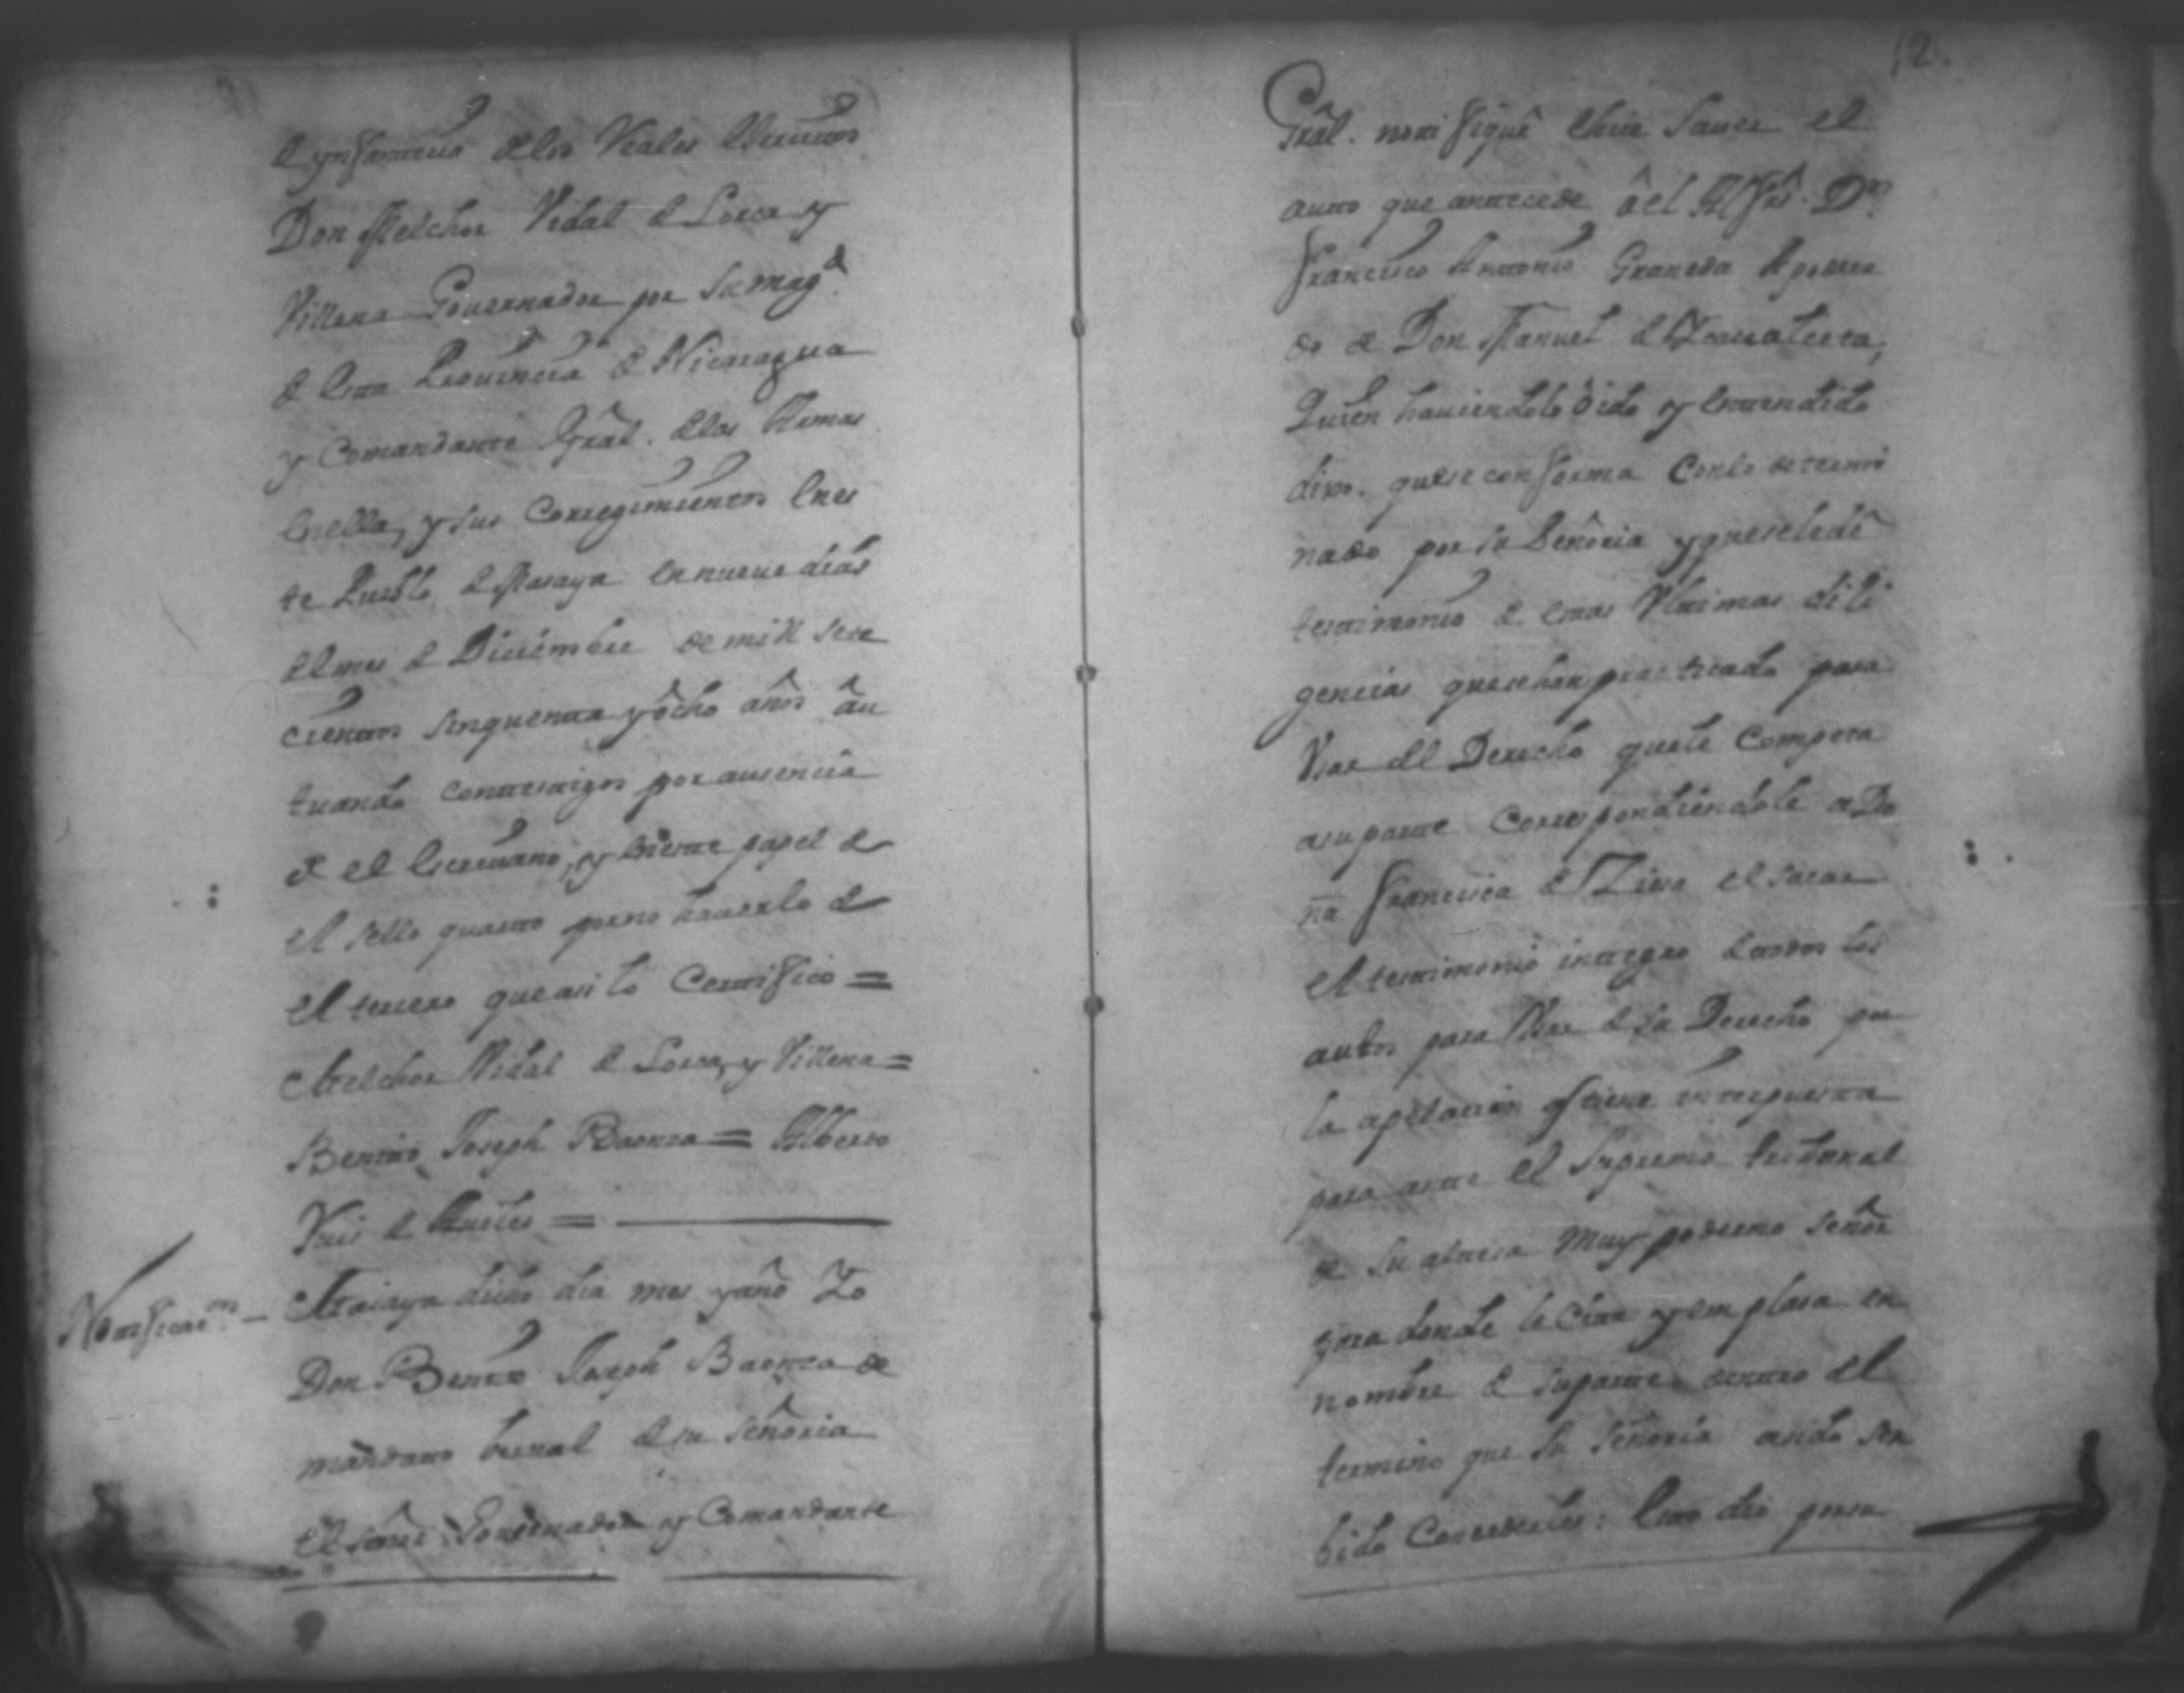 de ynfanteria delos Reales Exercitos
Don Melchor Vidal de Lorca y
Villena Governador por su Magd
de esta Provincia de Nicaragua
y Comandante Grâl. delas Armas
en ella, y sus Corregimientos en es
te Pueblo de Masaya en nueve dias
del mes de Diciembre de mill sete
cientos sinquenta y ôcho años âu
tuando con testigos por ausencia
de el Escrivano, y en este papel de
el sello quarto por no haverlo de
el tercero que asi lo Certifico =
Melchor Vidal de Lorca, y Villena =
Benito Joseph Baonza = Alberto
Luis de =
Notificacon –
Masaya dicho dia mes y año Yo
Don Benito Joseph Baonza de
mandato berval de su Señoria
el señor Governador y Comandante
12.
Grâl. notifiquê è hice saver el
auto que antecede âel Alferes Dn
Francisco Antonio Graneda Apodera
do de Don Manuel de
Quien haviendolo oido y entendido
dixo. que se conforma Con lo determi
nado por su Señoria y que se le dê
testimonio de estas Vltimas dili
gencias que se han practicado para
Vsar del Derecho que le Competa
a su parte Correspondiendole a Do
ña Francisca de el sacar
el testimonio integro de todos los
autos para Vsar de su Derecho por
la apelacion que tiene interpuesta
para ante el Supremo tribunal
de su alteza Muy poderoso Señor
para donde le Cita y emplasa en
nombre de su parte dentro del
termino que su Señoria a sido ser
bido Concederles: Esto dio por su